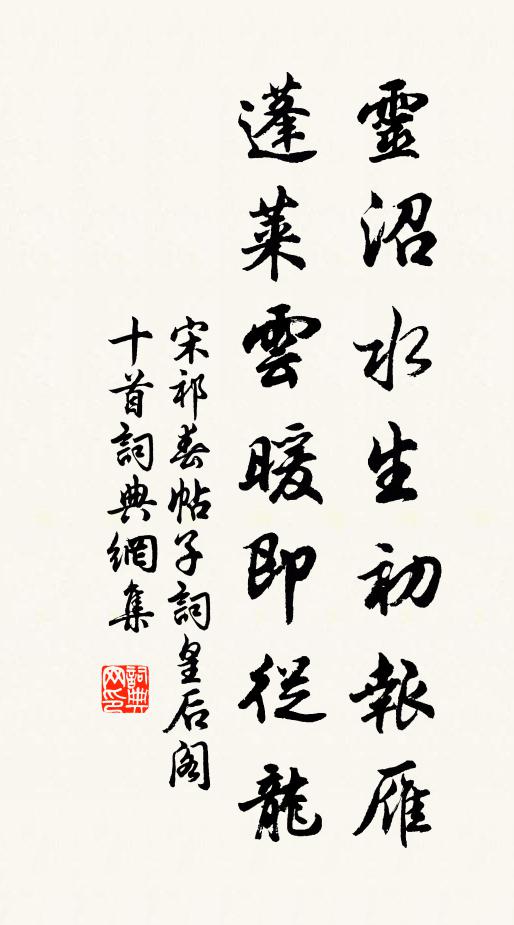 靈沼水生初報雁
蓬萊雲暖即從龍
宋祁春帖子詞皇后阁
十首詞典網集
詞典
网印